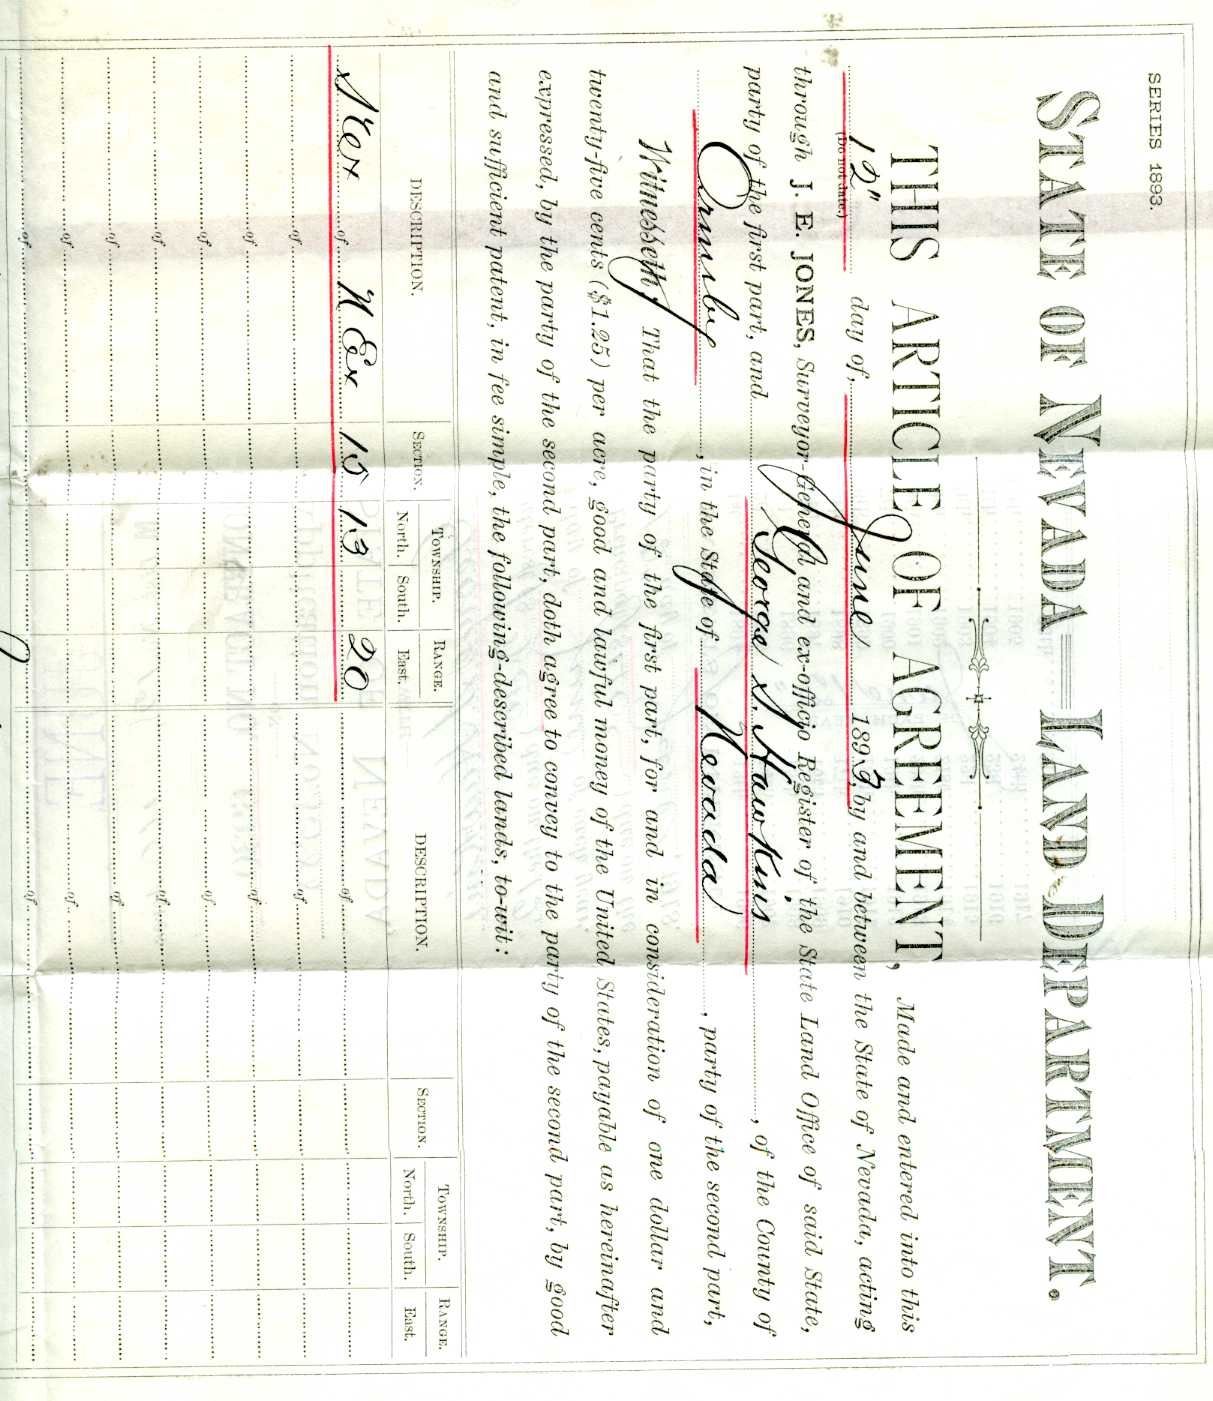 SERIES 1893.
STATE OF NEVADA=LAND DEPARTMENT.
THIS ARTICLE OF AGREEMENT, Made and entered into this
12" day of, June 1893, by and between the State of Nevada, acting
(Do not date.)
through J. E. JONES, Surveyor-General and ex-officio Register of the State Land Office of said State,
party of the first part, and George S. Hawkins, of the County of
Ormsby, in the State of Nevada, party of the second part,
Witnesseth, That the party of the first part, for and in consideration of one dollar and
twenty-five cents ($1.25) per acre, good and lawful money of the United States, payable as hereinafter
expressed, by the party of the second part, doth agree to convey to the party of the second part, by good
and sufficient patent, in fee simple, the following-described lands, to-wit:
DESCRIPTION. SECTION. TOWNSHIP. RANGE. DESCRIPTION. SECTION. TOWNSHIP. RANGE.
North. South. East. North. South. East.
of NE¼ 15 13 20 of
of of
of of
of of
of of
of of
of of
of of